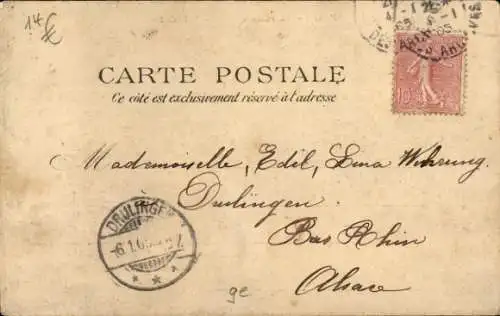 14€
CARTE POSTALE
Ce côté est exclusivement réservé à l'adresse
10
Mademoiselle, Edil, Lina Wehrung.
Drulingen.
Bas Rhin
Alsace
DRULINGEN
6.1.0
ge